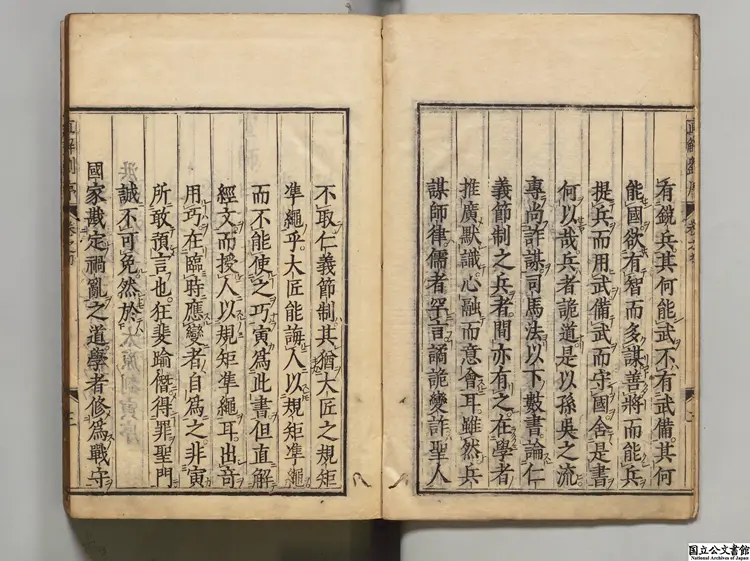 有銳兵其何能武不有武備其何
能國欲有智而多謀善將而能兵
提兵而用武備武而守國舍是書
何以哉兵者詭道是以孫吳之流
專尚詐謀司馬法以下數書論仁
義節制之兵者間亦有之在學者
推廣默識心融而意會耳雖然兵
謀師律儒者罕言譎詭變詐聖人
不取仁義節制其猶大匠之規矩
準繩乎大匠能誨人以規矩準繩
而不能使之巧寅爲此書但直解
經文而授人以規矩準繩耳出奇
用巧在臨時應變者自爲之非寅
所敢預言也狂斐踰僭得罪聖門
誠不可免然於
國家戡定禍亂之道學者修爲戰守
直解劉序
三
国立公文書館
National Archives of Japan